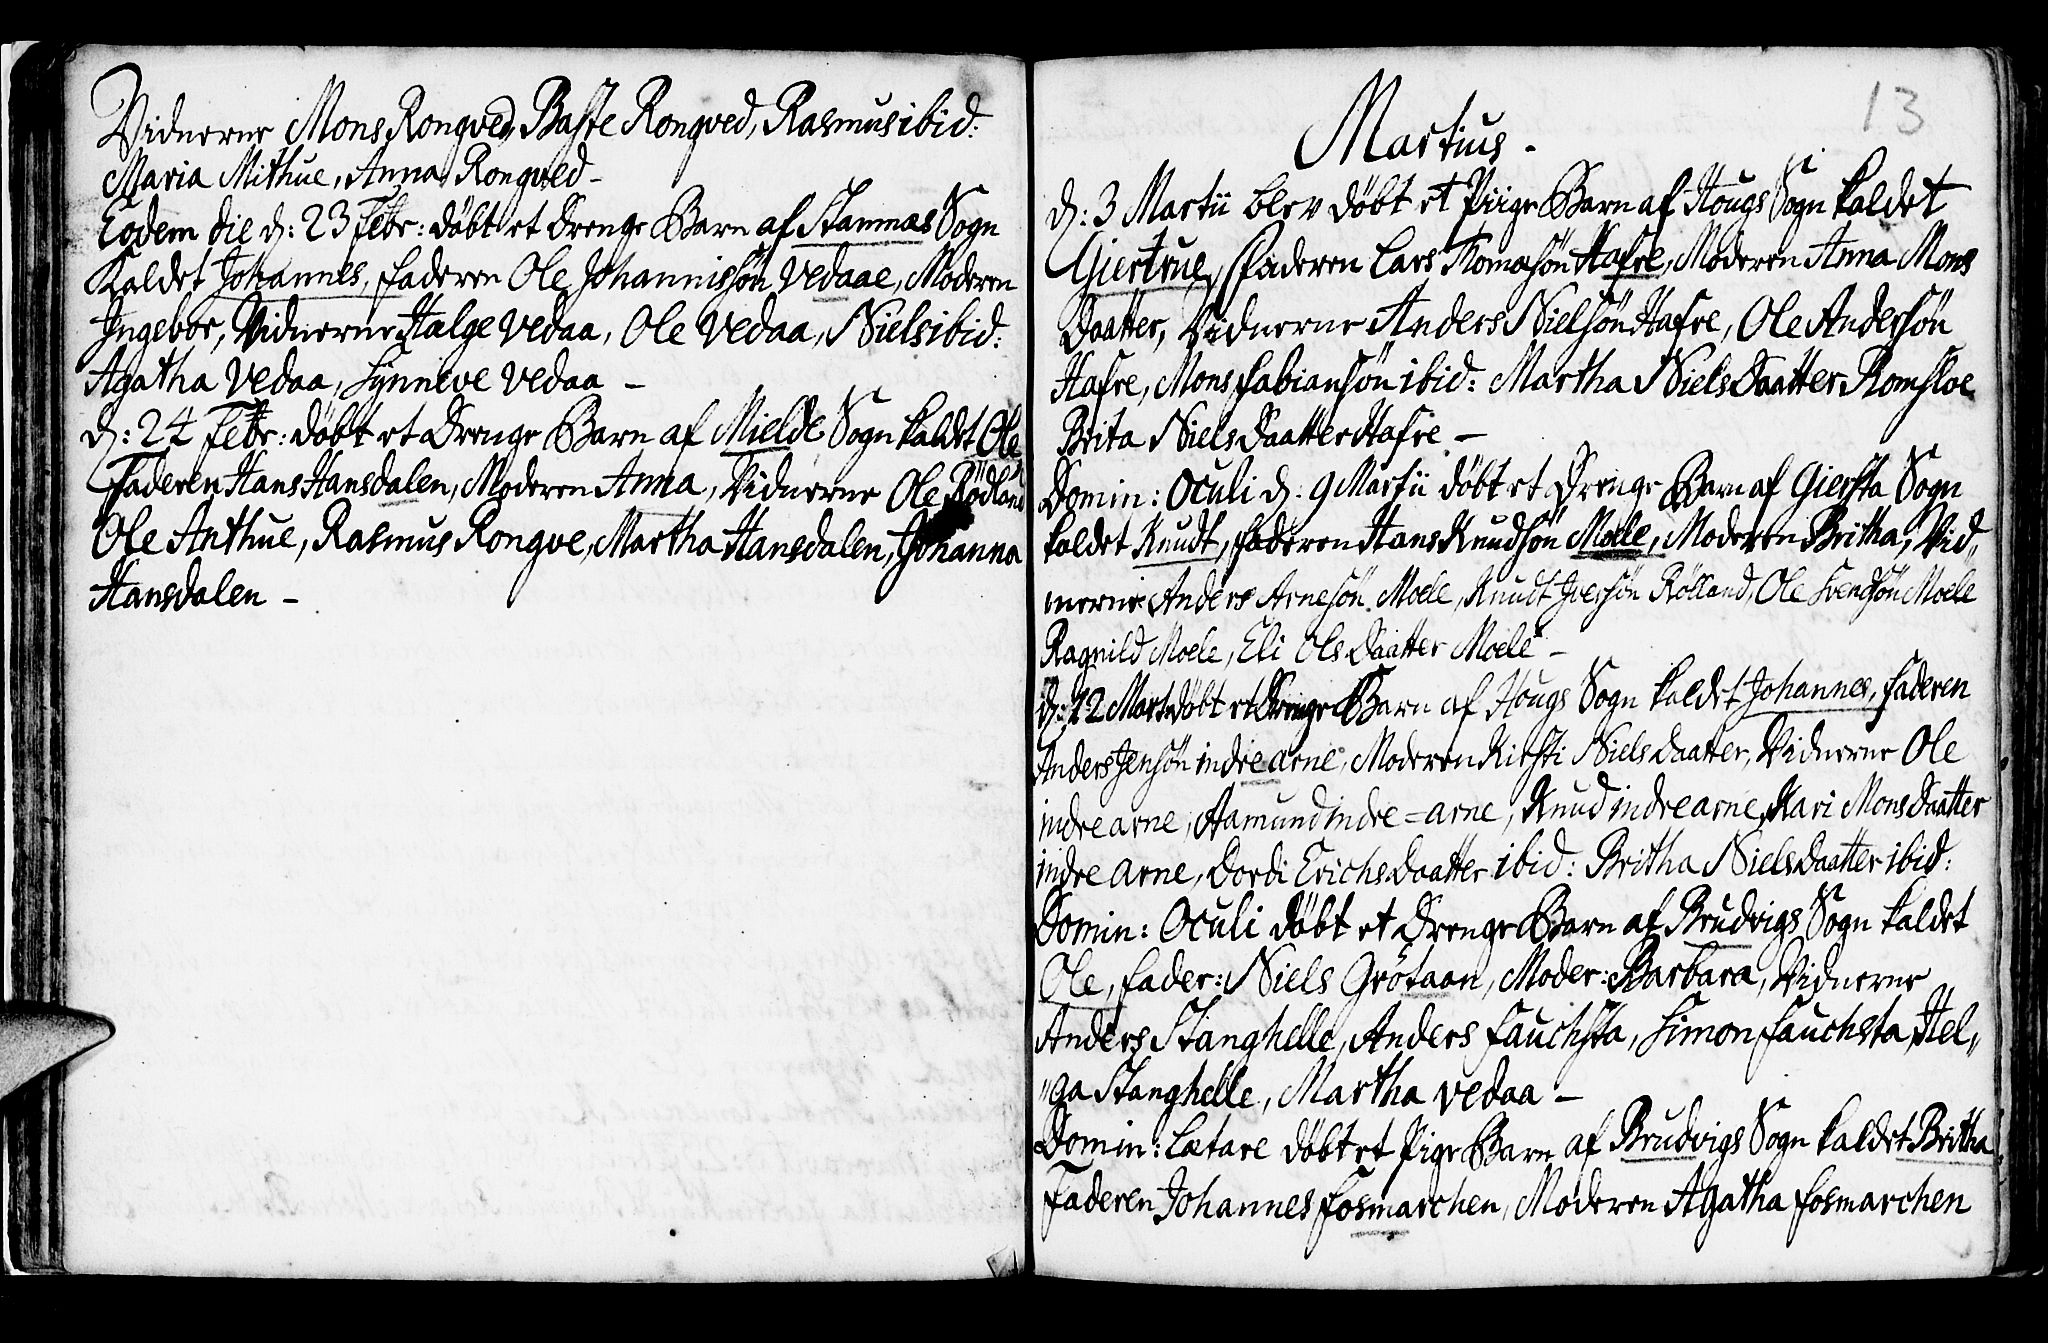 Vidnerne Mons Rongved, Baste Rongved, Rasmus ibid:
Maria Mithue, Anna Rongved –
Eodem die d: 23 Febr: döbt et Drenge Barn af Stammæs Sogn
Kaldet Johannes, Faderen Ole Johannissön Vedaae, Moderen
Ingebor, Vidnerne Hælge Vedaa, Ole Vedaa, Niels ibid:
Agatha Vedaa, Synneve Vedaa –
d: 24 Febr: döbt et Drenge Barn af Mielde Sogn kaldet Ole
Faderen Hans Hansdalen, Moderen Anna, Vidnerne Ole Rödland
Ole Anthue, Rasmus Rongve, Martha Hansdalen, Johanna
Hansdalen –
13
Martius.
d: 3 Martii blev döbt et Piige Barn af Hougs Sogn kaldet
Giertrue, Faderen Lars Tomasön Hafre, Moderen Anna Mons
Daatter, Vidnerne Anders Nielsön Hafre, Ole Andersön
Hafre, Mons Fabiansön ibid: Martha Niels Daatter Romsloe
Brita Niels Daatter Hafre –
Domin: Oculi d: 9 Martii döbt et Drenge Barn af Giersta Sogn
kaldet Knudt, Faderen Hans Knudsön Moele, Moderen Britha, Vid„
nerne Anders Arnesön Moele, Knudt Iversön Rölland, Ole Svendsön Moele
Ragnild Moele, Eli Ols Daatter Moele –
d: 12 Mart: döbt et Drenge Barn af Hougs Sogn kaldet Johannes, Faderen
Anders Jensön indre arne, Moderen Kirsti Niels Daatter, Vidnerne Ole
indre arne, Aamund indre=arne, Knud indre arne, Kari Mons Daatter
indre arne, Dordi Erichs Daatter ibid: Britha Niels Daatter ibid:
Domin: Oculi döbt et Drenge Barn af Brudvigs Sogn kaldet
Ole, Fader: Niels Grötaan, Moder: Barbara, Vidnerne
Anders Stanghelle, Anders Fauchsta, Simon Fauchsta, Hel„
„ga Stanghelle, Martha Vedaa –
Domin: Lætare döbt et Pige Barn af Brudvigs Sogn kaldet Britha
Faderen Johannes Fosmarchen, Moderen Agatha Fosmarchen